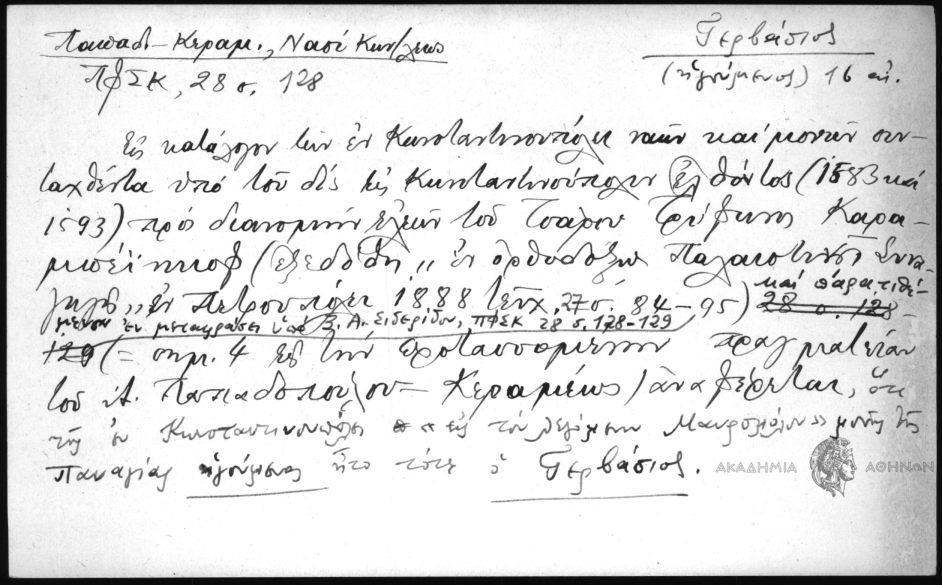 Παπαδ-Κεραμ., Ναοί Κων/λεως
Γερβάσιος
(ἡγούμενος) 16 αἰ.
ΠΦΣΚ, 28 σ. 128
Εἰς κατάλογον τῶν ἐν Κωνσταντινουπόλει ναῶν καὶ μονῶν συν-
ταχθέντα ὑπὸ τοῦ δὶς εἰς Κωνσταντινούπολιν ἐλθόντος (1583 καὶ
1593) πρὸς διανομὴν ἐλεῶν τοῦ Τσάρου Τρύφωνος Καρα-
μπέϊνικοφ (ἐξεδόθη „ ἐν ὀρθοδόξῳ Παλαιστινῇ Συλλο-
γῇ „ ἐν Πετρουπόλει 1888 τεῦχ. 27 σ. 84-95) καὶ παρατιθέ-
28 σ. 128-
μενον ἐν μεταφράσει ὑπὸ Ξ. Α. Σιδερίδου, ΠΦΣΚ 28 σ. 128-129
129 (= σημ. 4 εἰς τὴν προτασσομένην πραγματείαν
τοῦ Α. Παπαδοπούλου-Κεραμέως) ἀναφέρεται, ὅτι
τῆς ἐν Κωνσταντινουπόλει « εἰς τὸν λεγόμενον Μαυρομόλον» μονῆς τῆς
Παναγίας ἡγούμενος ἦτο τότε ὁ Γερβάσιος.
ΑΚΑΔΗΜΙΑ ΑΘΗΝΩΝ